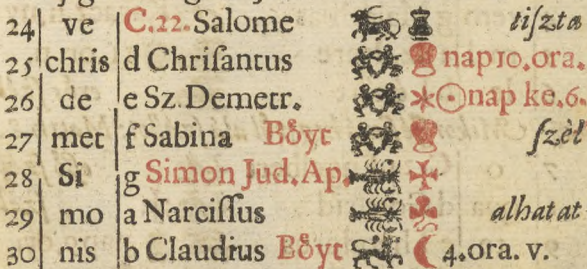 24 ve C.22. Salome tiſzta
25 chris d Chriſantus nap 10. ora.
26 de e Sz. Demetr. ☉ nap ke. 6.
27 met f Sabina Bőyt ſzèl
28 Si g Simon Jud. Ap.
29 mo a Narciſſus alhatat
30 nis b Claudius Bőyt ☾ 4. ora. v.